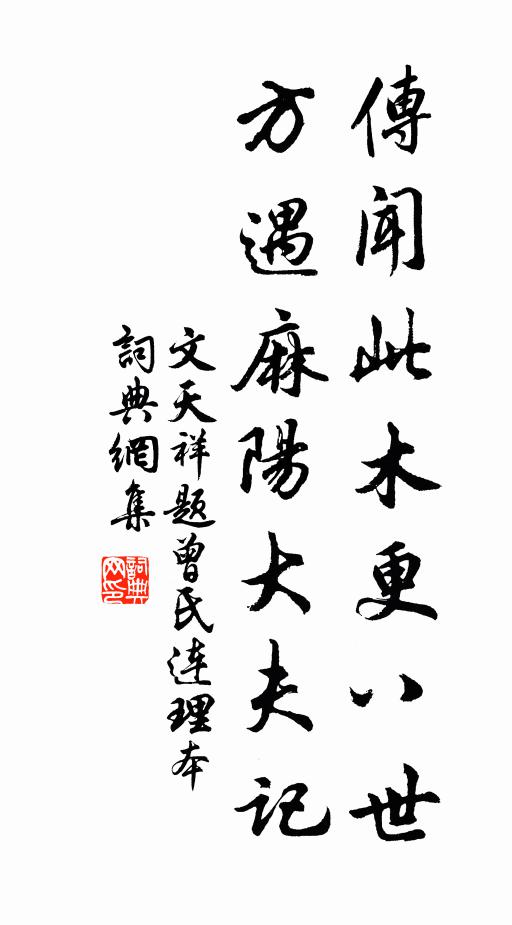 傳聞此木更八世
方遇麻陽大夫記
文天祥题曾氏連理本
詞典網集
詞典网印